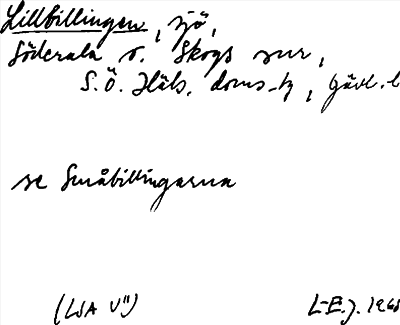 Lillbillingen, sjö,
Söderala o. Skogs snr,
S.Ö. Häls. doms-tg, Gävl. l
se Småbillingarna
(LSA V") L-E.J. 1965